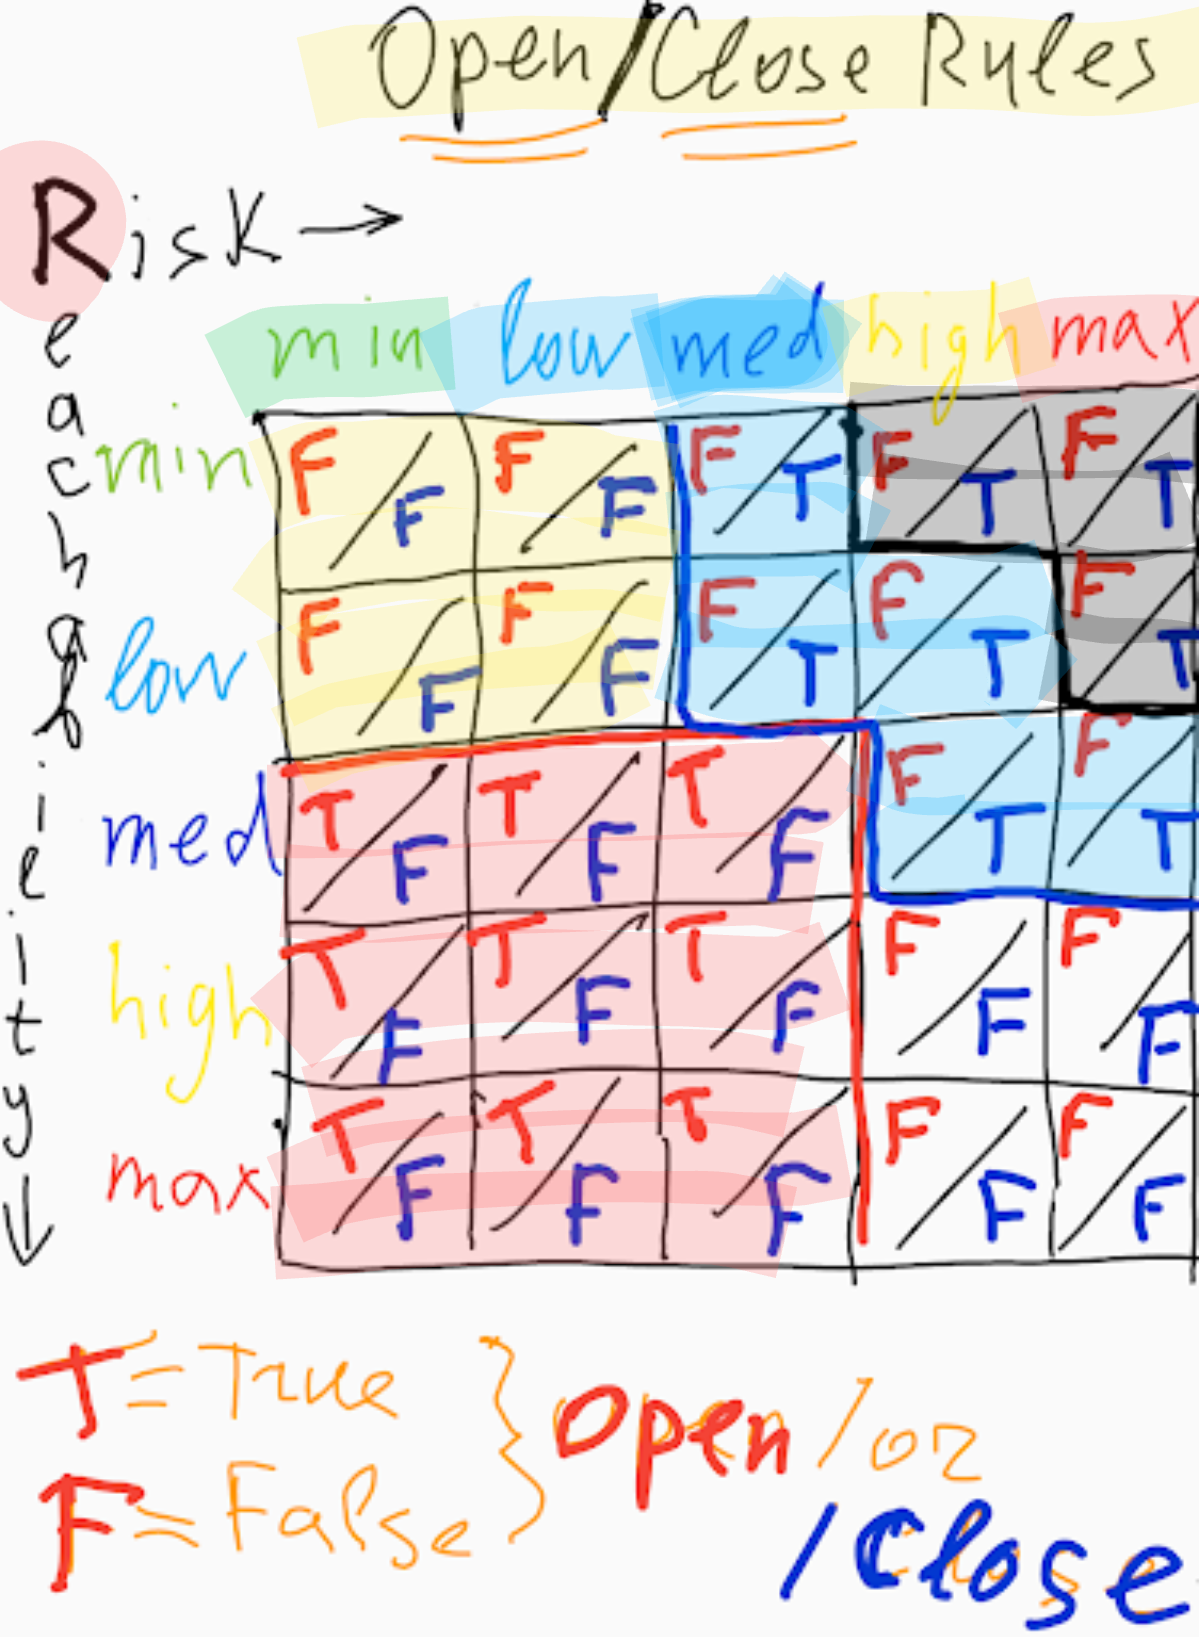 Open/Close Rules
Risk →
Reachability ↓
min low med high max
min F/F F/F F/T F/T F/T
low F/F F/F F/T F/T F/T
med T/F T/F T/F F/T F/T
high T/F T/F T/F F/F F/F
max T/F T/F T/F F/F F/F
T = True
F = False
} Open / or
/Close